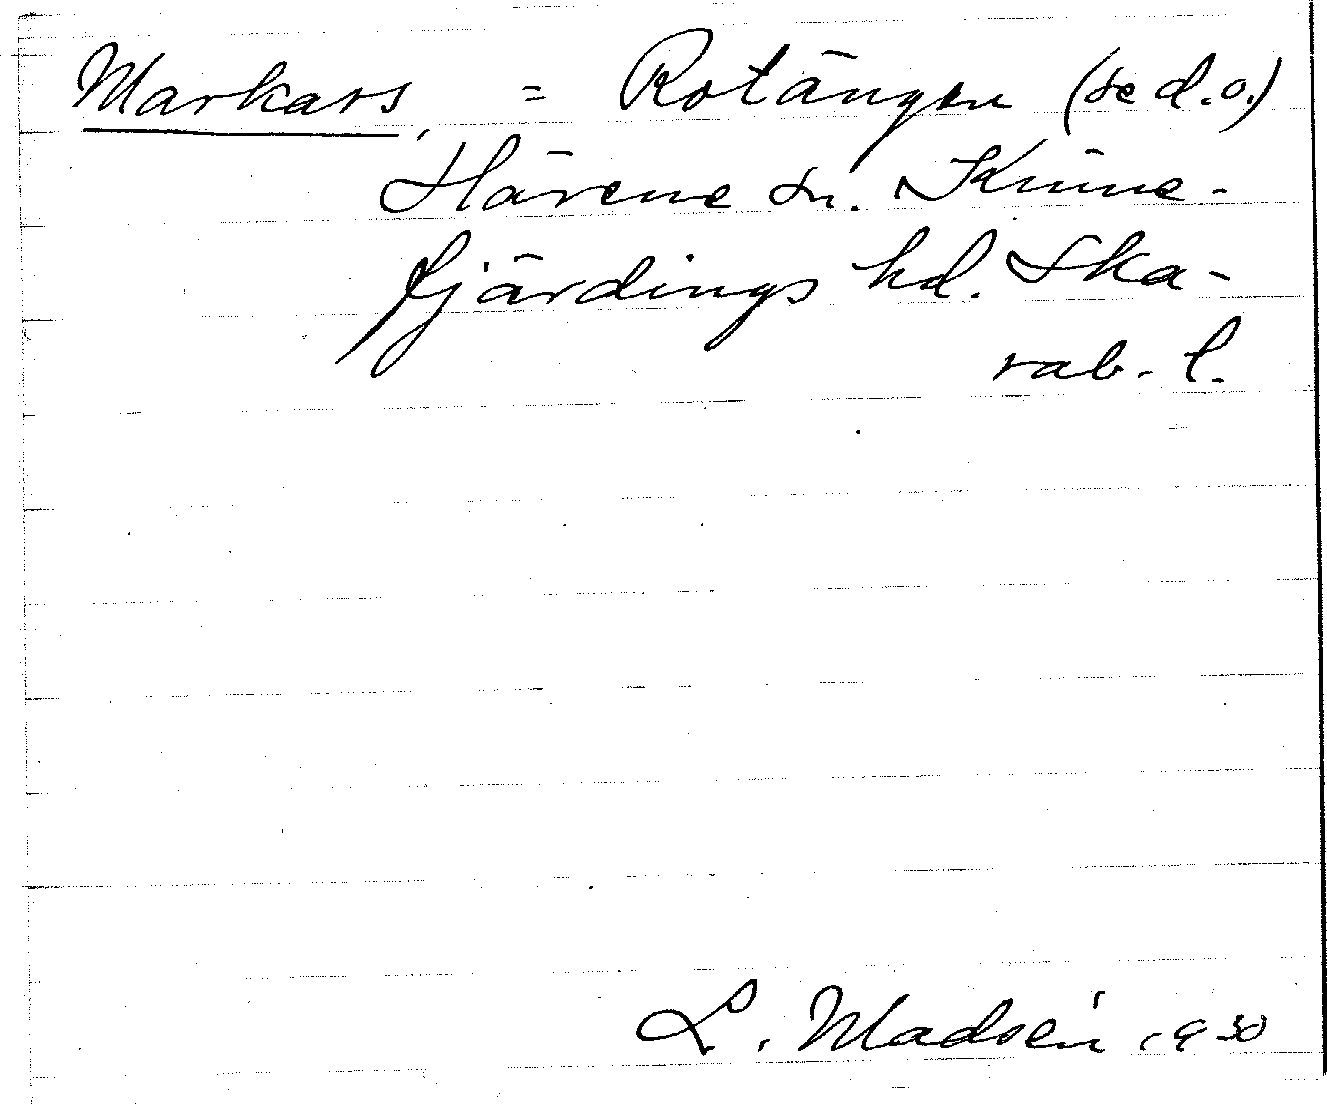 Markars, = Rotängen (se d.o.)
Härene sn. Kinne-
fjärdings hd. Ska-
rab. l.
L. Madsén 1930